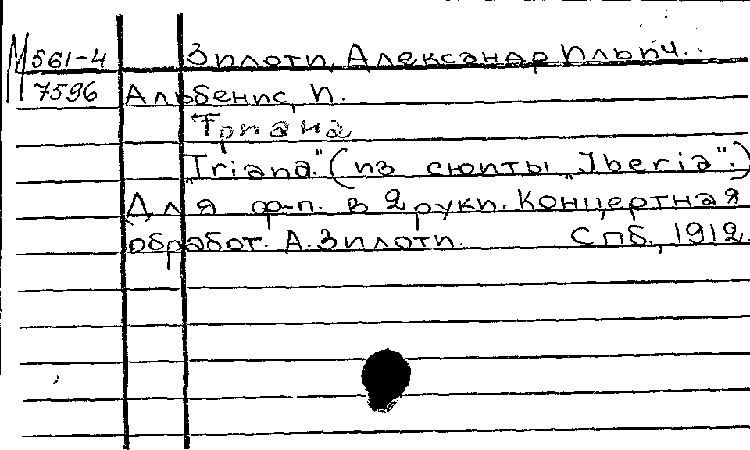 М 561-4 Зилоти, Александр Ильич.
7596 Альбенис, И.
Триана
"Triana." (из сюиты "Iberia".)
Для ф-п. в 2 руки. Концертная
обработ. А. Зилоти. Спб., 1912.